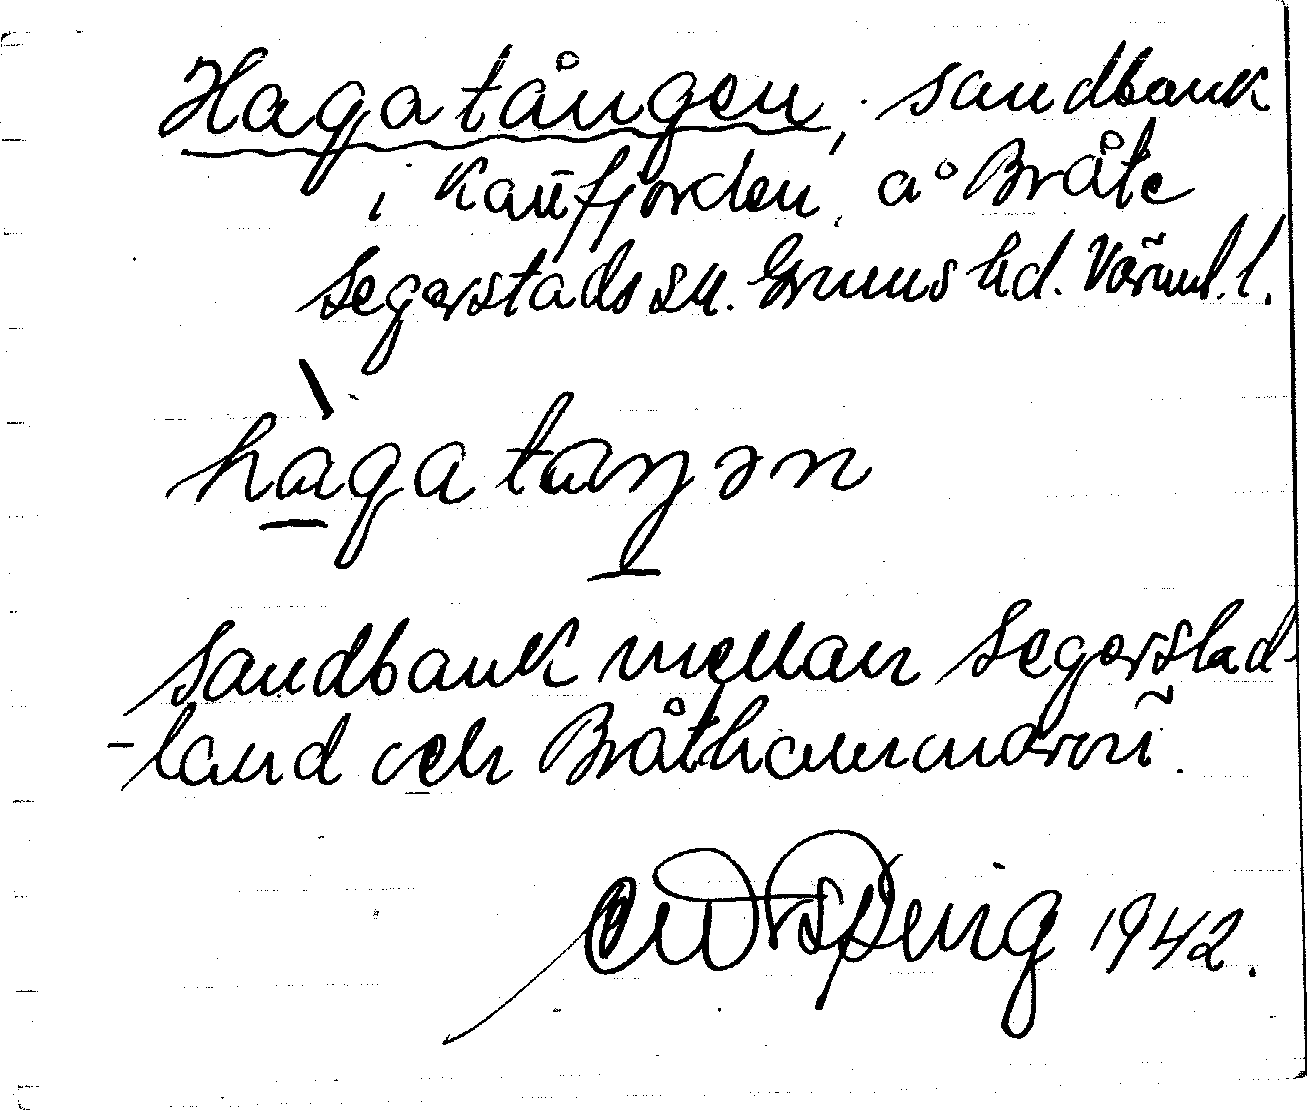 Hagatången, sandbank
i Kattfjorden, å Bråte
Segerstads sn. Grums hd. Värml. l.
hàga taŋən
sandbank mellan Segerstad-
-land och Bråthammarn
1942.